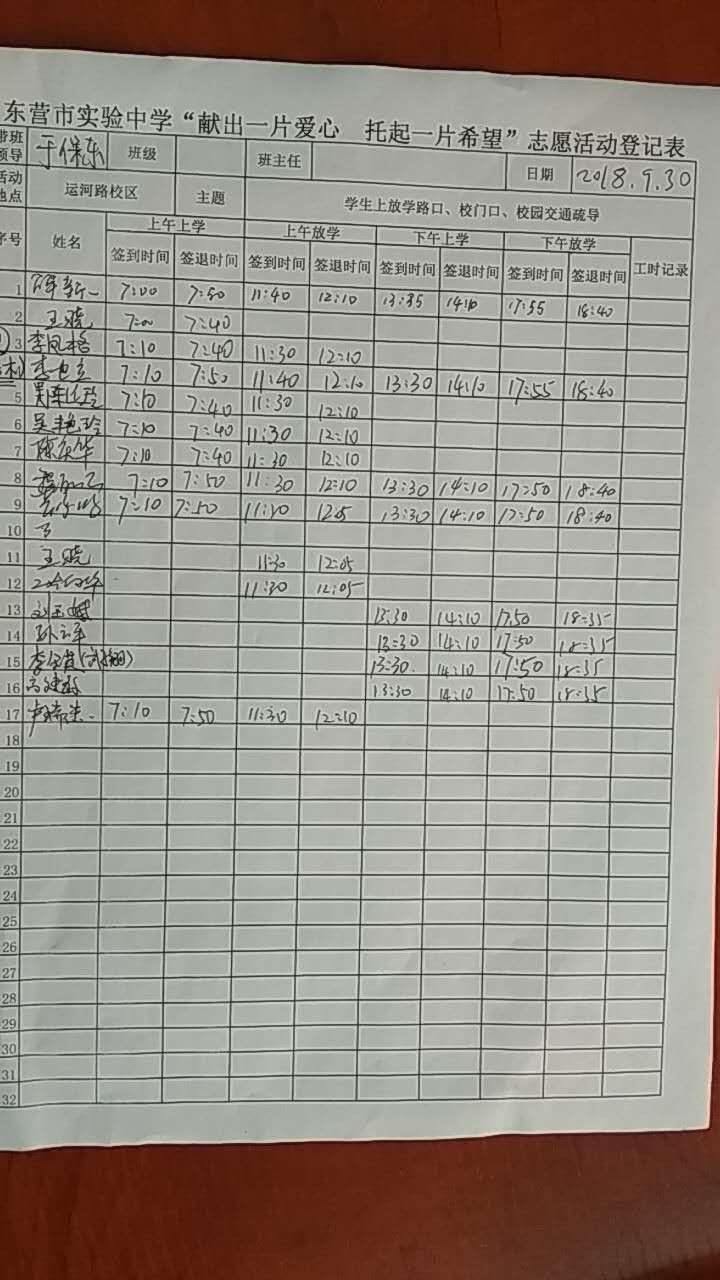 东营市实验中学“献出一片爱心 托起一片希望”志愿活动登记表
带班领导 于保东 班级 班主任 日期 2018.9.30
活动地点 运河路校区 主题 学生上放学路口、校门口、校园交通疏导
序号 姓名 上午上学 上午放学 下午上学 下午放学 工时记录
签到时间 签退时间 签到时间 签退时间 签到时间 签退时间 签到时间 签退时间
1 7:00 7:50 11:40 12:10 13:35 14:10 17:55 18:40
2 王晓 7:00 7:40
3 李凤格 7:10 7:40 11:30 12:10
7:10 7:50 11:40 12:10 13:30 14:10 17:55 18:40
5 7:10 7:40 11:30 12:10
6 吴艳玲 7:10 7:40 11:30 12:10
7 7:10 7:40 11:30 12:10
8 7:10 7:50 11:30 12:10 13:30 14:10 17:50 18:40
9 7:10 7:50 12:05 13:30 14:10 17:50 18:40
10
11 王晓 11:30 12:05
12 11:30 12:05
13 13:30 14:10 17:50 18:35
14 13:30 14:10 17:50 18:35
15 13:30 14:10 17:50 18:35
16 13:30 14:10 17:50 18:35
17 7:10 7:50 11:30 12:10
18
19
20
21
22
23
24
25
26
27
28
29
30
31
32